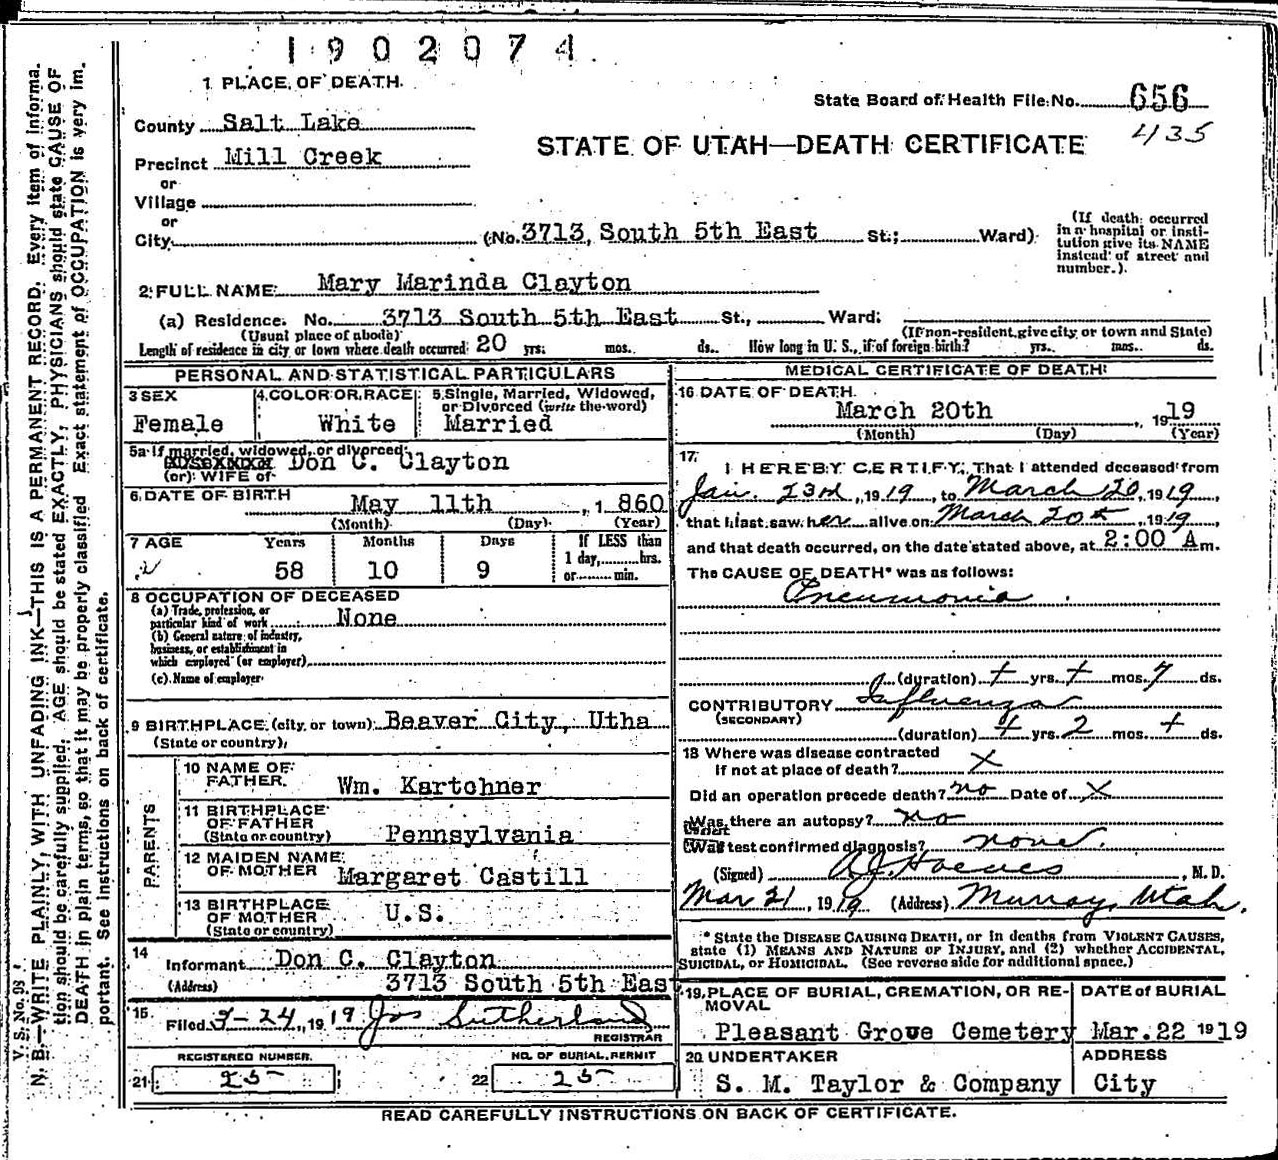 1902074
1 PLACE OF DEATH.
State Board of Health File No. 656
435
County Salt Lake
STATE OF UTAH—DEATH CERTIFICATE
Precinct Mill Creek
or
Village
or
City (No. 3713, South 5th East St.; Ward)
(If death occurred in a hospital or institution give its NAME instead of street and number.)
2 FULL NAME Mary Marinda Clayton
(a) Residence. No. 3713 South 5th East St., Ward.
(Usual place of abode) (If non-resident give city or town and State)
Length of residence in city or town where death occurred 20 yrs. mos. ds. How long in U. S., if of foreign birth? yrs. mos. ds.
PERSONAL AND STATISTICAL PARTICULARS
3 SEX
Female
4 COLOR OR RACE
White
5 Single, Married, Widowed, or Divorced (write the word)
Married
5a If married, widowed, or divorced
(or) WIFE of Don C. Clayton
6 DATE OF BIRTH
May 11th, 1860
(Month) (Day) (Year)
7 AGE Years Months Days If LESS than
1 day, hrs.
58 10 9 or min.
8 OCCUPATION OF DECEASED
(a) Trade, profession, or
particular kind of work None
(b) General nature of industry,
business, or establishment in
which employed (or employer)
(c) Name of employer
9 BIRTHPLACE (city or town) Beaver City, Utha
(State or country)
PARENTS
10 NAME OF
FATHER Wm. Kartchner
11 BIRTHPLACE
OF FATHER
(State or country) Pennsylvania
12 MAIDEN NAME
OF MOTHER Margaret Castill
13 BIRTHPLACE
OF MOTHER U.S.
(State or country)
14
Informant Don C. Clayton
(Address) 3713 South 5th East
15
Filed 3-24, 1919 Jos Sutherland
REGISTRAR
REGISTERED NUMBER. NO. OF BURIAL PERMIT
21 25 22 25
MEDICAL CERTIFICATE OF DEATH
16 DATE OF DEATH.
March 20th, 1919
(Month) (Day) (Year)
17
I HEREBY CERTIFY, That I attended deceased from
Jan. 23rd, 1919, to March 20, 1919,
that I last saw her alive on March 20th, 1919,
and that death occurred, on the date stated above, at 2:00 A m.
The CAUSE OF DEATH* was as follows:
Pneumonia.
(duration) + yrs. + mos. 7 ds.
CONTRIBUTORY Influenza
(SECONDARY)
(duration) + yrs. 2 mos. + ds.
18 Where was disease contracted
If not at place of death? X
Did an operation precede death? no Date of X
Was there an autopsy? no
What test confirmed diagnosis? none.
(Signed) , M. D.
Mar 21, 1919 (Address) Murray, Utah.
* State the DISEASE CAUSING DEATH, or in deaths from VIOLENT CAUSES,
state (1) MEANS AND NATURE OF INJURY, and (2) whether ACCIDENTAL,
SUICIDAL, or HOMICIDAL. (See reverse side for additional space.)
19 PLACE OF BURIAL, CREMATION, OR RE-
MOVAL
Pleasant Grove Cemetery
DATE of BURIAL
Mar. 22 1919
20 UNDERTAKER
S. M. Taylor & Company
ADDRESS
City
READ CAREFULLY INSTRUCTIONS ON BACK OF CERTIFICATE.
V. S. No. 98
N. B.—WRITE PLAINLY, WITH UNFADING INK—THIS IS A PERMANENT RECORD. Every item of informa-
tion should be carefully supplied. AGE should be stated EXACTLY, PHYSICIANS should state CAUSE OF
DEATH in plain terms, so that it may be properly classified. Exact statement of OCCUPATION is very im-
portant. See instructions on back of certificate.